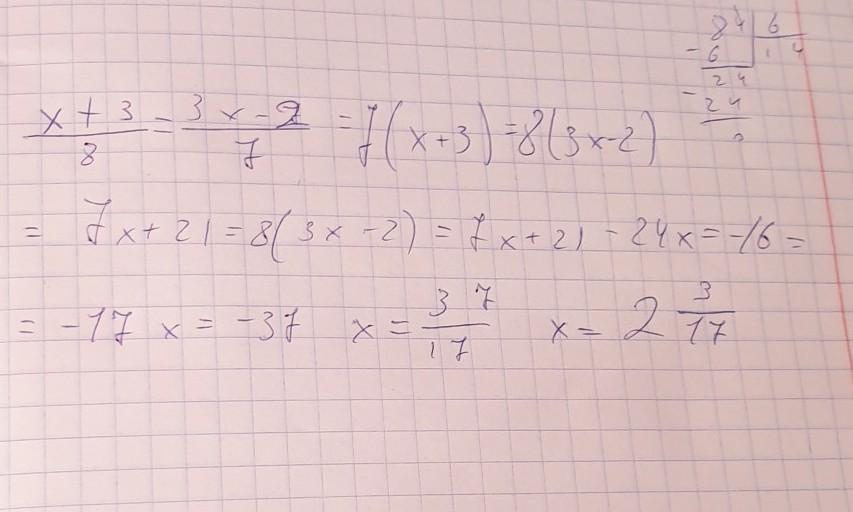 84 | 6
- 6 | 14
24
- 24
0
(x + 3)/8 = (3x - 2)/7 = 7(x+3) = 8(3x-2)
= 7x + 21 = 8(3x - 2) = 7x + 21 - 24x = -16 =
= -17x = -37 x = 37/17 x = 2 3/17